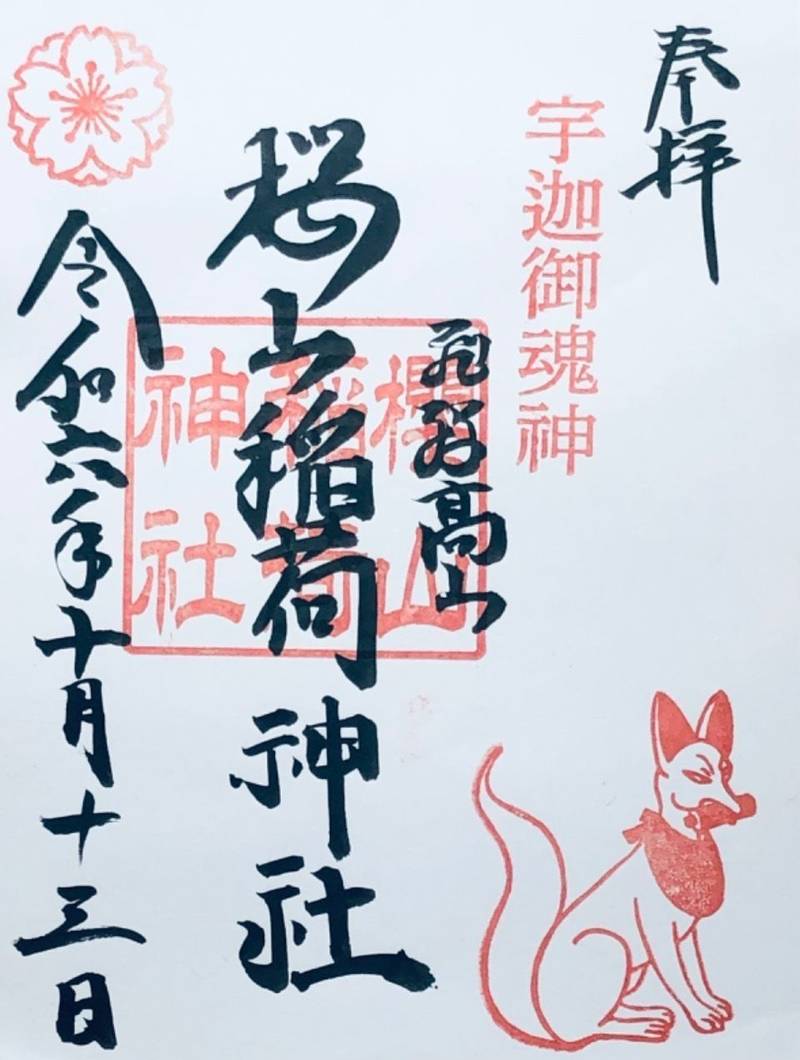 奉拝
宇迦御魂神
飛騨高山
桜山稲荷神社
櫻山
稲荷
神社
令和六年十月十三日